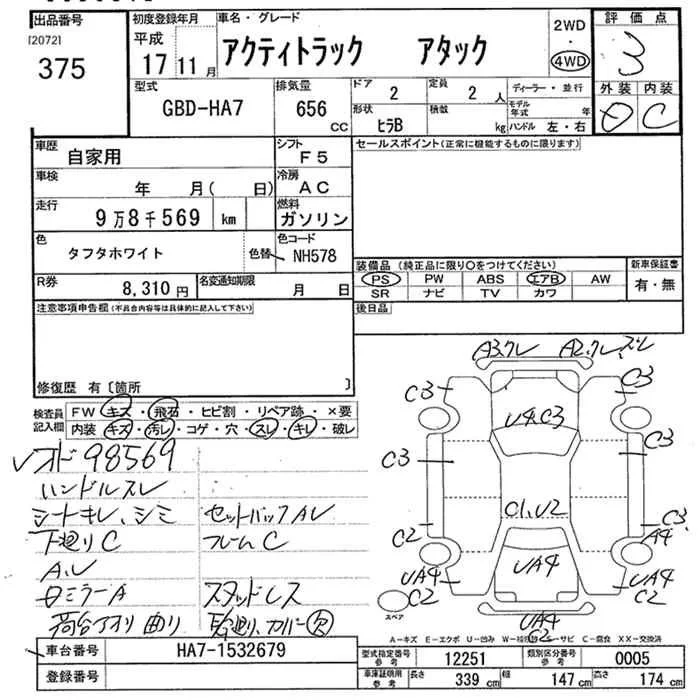 出品番号
[2072]
375
初度登録年月
平成
17 11 月
車名・グレード
アクティトラック アタック
2WD
・
4WD
評価点
3
外装 内装
D C
型式
GBD-HA7
排気量
656
CC
ドア
2
定員
2 人
ディーラー・並行
形状
ヒラB
積載
kg
モデル年式 年
ハンドル 左・右
車歴
自家用
シフト
F5
セールスポイント(正常に機能するものに限ります)
車検
年 月( 日)
冷房
AC
走行
9万8千569 km
燃料
ガソリン
色
タフタホワイト
色替
色コード
NH578
装備品 (純正品に限り〇をつけてください)
新車保証書
PS PW ABS エアB AW
SR ナビ TV カワ
有・無
R券
8,310 円
名変通知期限
月 日
後日品
注意事項申告欄(不具合内容等は具体的に記入して下さい)
修復歴 有〔箇所 〕
検査員記入欄
FW キズ・飛石・ヒビ割・リペア跡・×要
内装 キズ・汚レ・コゲ・穴・スレ・キレ・破レ
98569
ハンドルスレ
シートキレ、シミ セットバックAU
下廻りC フレームC
A.U
ロミラーA スタッドレス
荷台アオリ曲り
A3.クレ A2.クレ、ズレ
C3 C3
U4.C3
C3 C3
C1,U2
C2 C3
A4
UA4 C2
UA4
UA4 C2
UA4
C2
スペア
A-キズ E-エクボ U-凹み W-補修跡 S-サビ C-腐食 XX-交換済
車台番号
HA7-1532679
登録番号
型式指定番号 参考
12251
類別区分番号 参考
0005
車庫証明用 参考
長さ 339 cm
幅 147 cm
高さ 174 cm